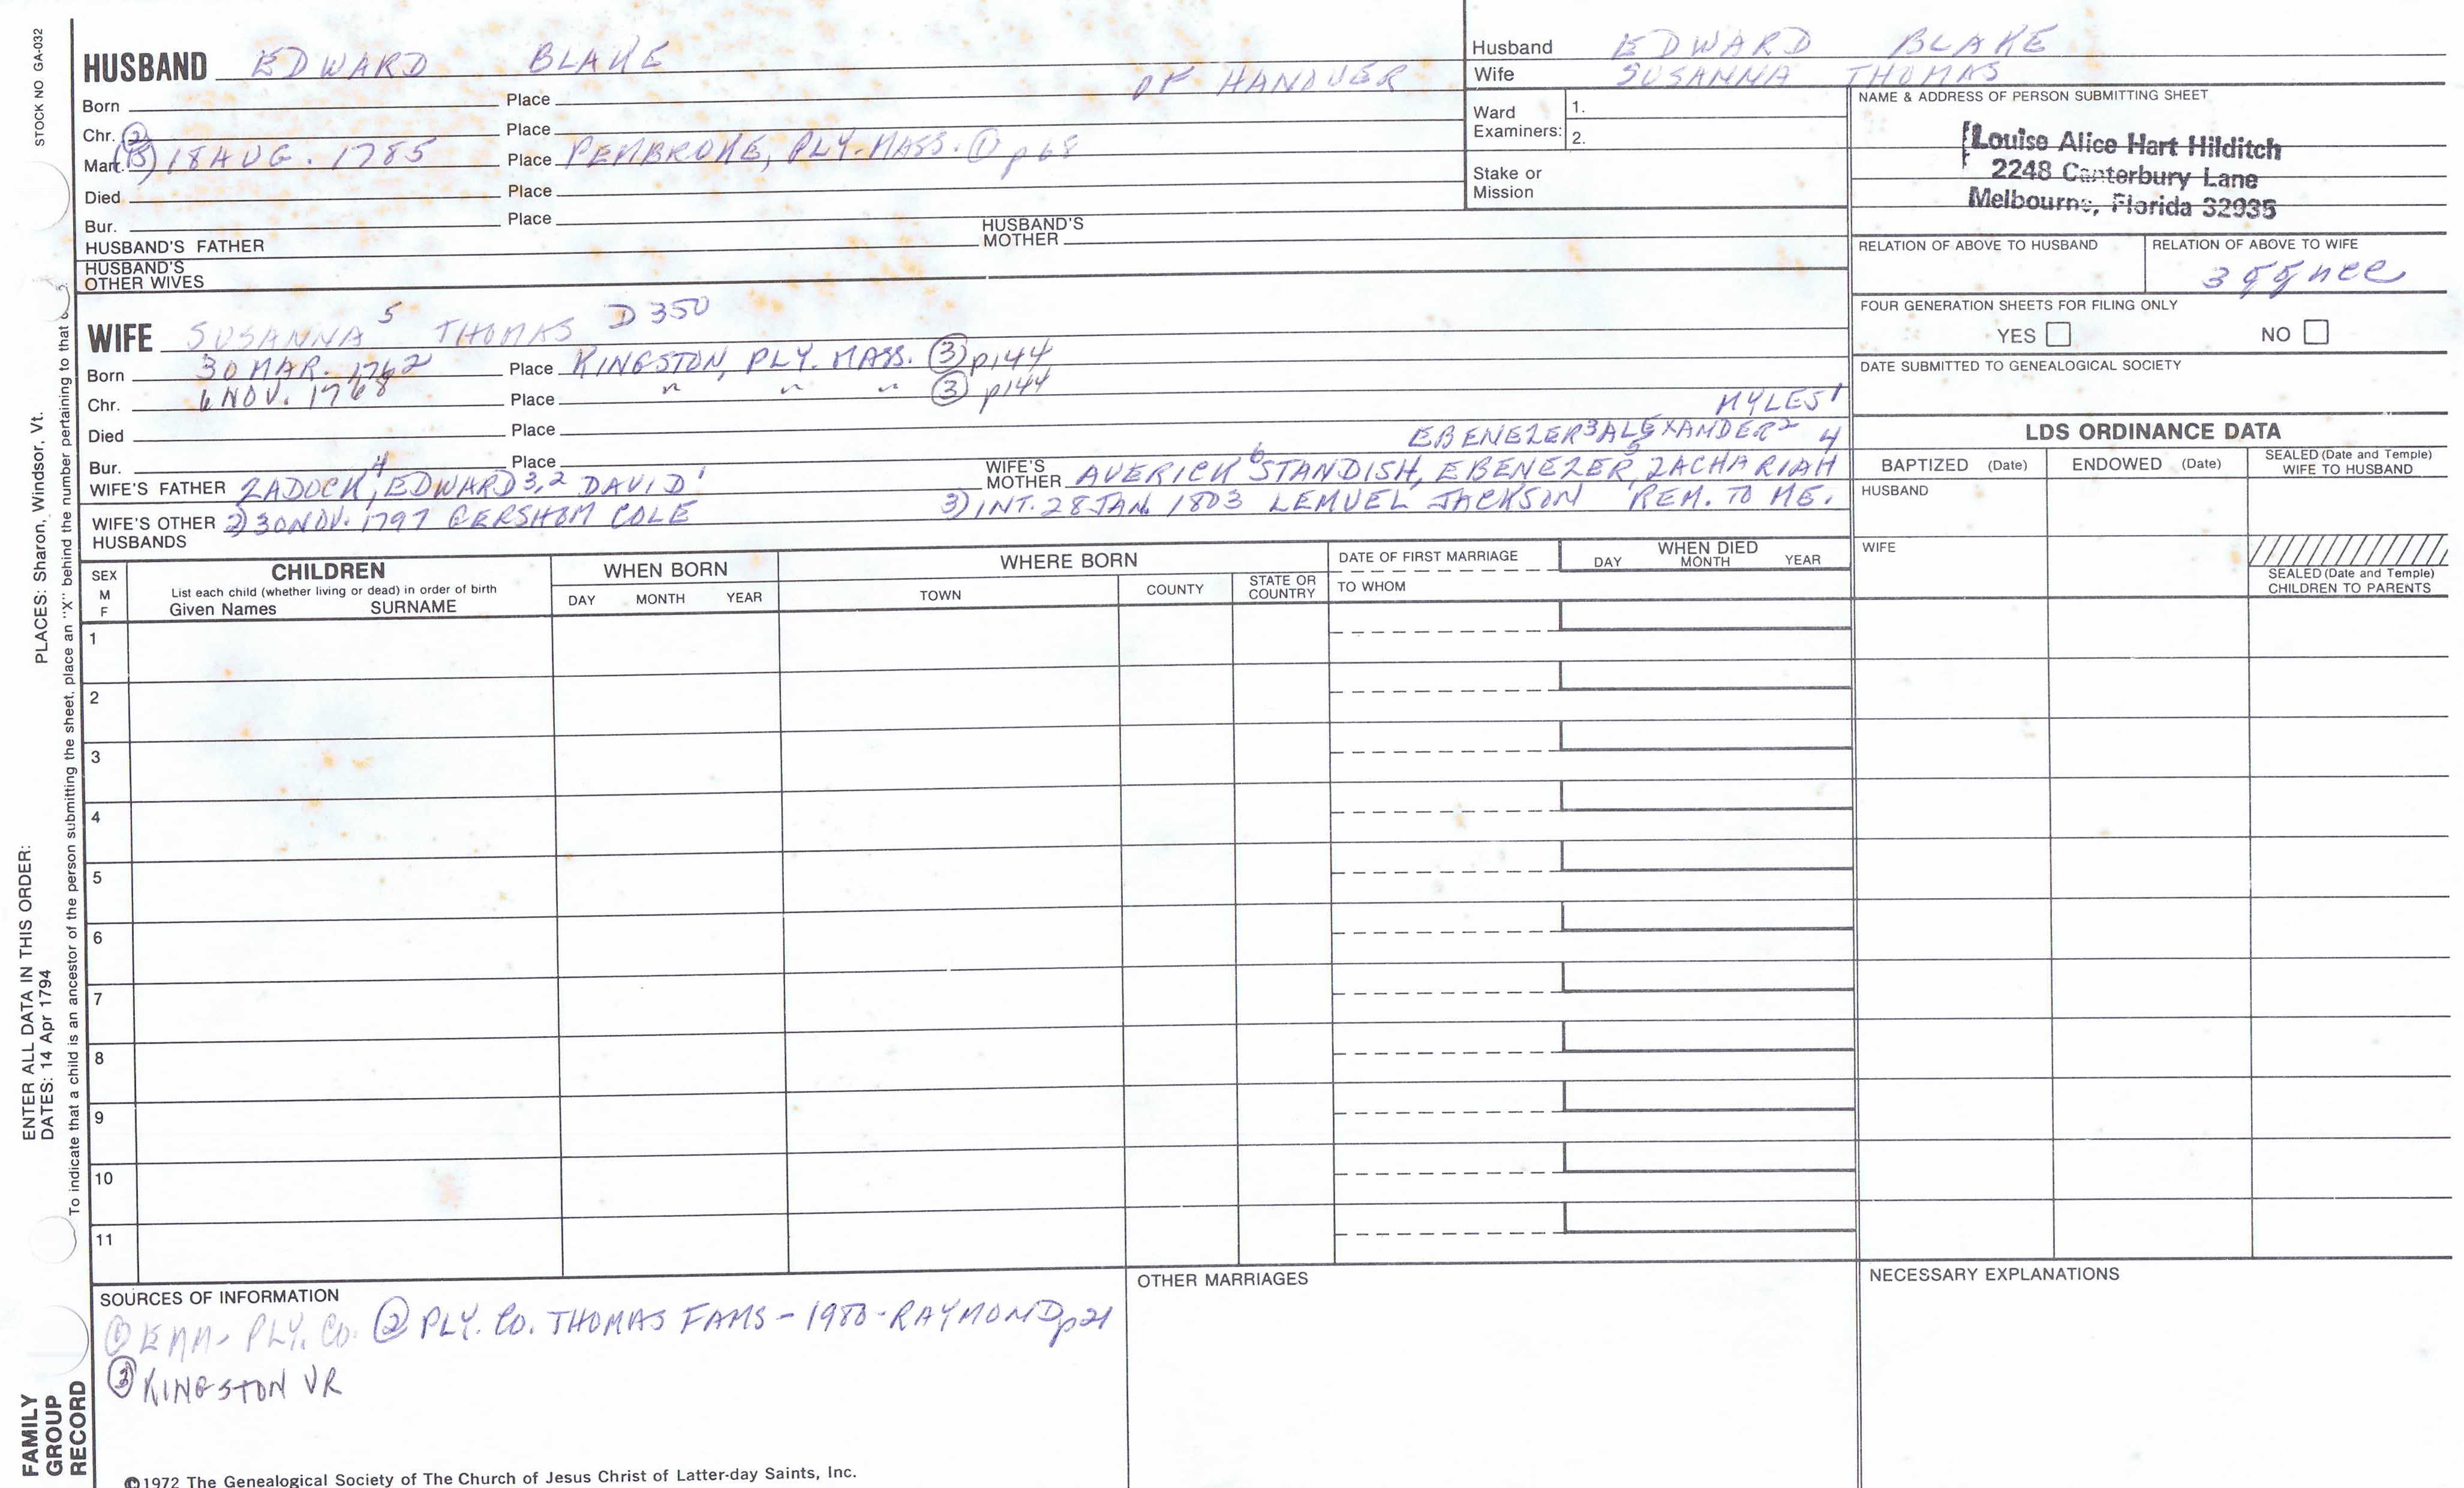 STOCK NO GA-032
HUSBAND EDWARD BLAKE
OF HANOVER
Born Place
Chr. Place
Marr. 18 AUG. 1785 Place PEMBROKE, PLY. MASS. ① p68
Died Place
Bur. Place
HUSBAND'S FATHER HUSBAND'S MOTHER
HUSBAND'S OTHER WIVES
Husband EDWARD BLAKE
Wife SUSANNA THOMAS
Ward Examiners: 1.
2.
Stake or Mission
NAME & ADDRESS OF PERSON SUBMITTING SHEET
Louise Alice Hart Hilditch
2248 Canterbury Lane
Melbourne, Florida 32935
RELATION OF ABOVE TO HUSBAND RELATION OF ABOVE TO WIFE
FOUR GENERATION SHEETS FOR FILING ONLY
YES NO
DATE SUBMITTED TO GENEALOGICAL SOCIETY
WIFE SUSANNA 5 THOMAS D 350
Born 30 MAR. 1762 Place KINGSTON, PLY. MASS. ③ p144
Chr. 6 NOV. 1768 Place " " " ③ p144
Died Place
Bur. Place
MYLES 1
EBENEZER 3 ALEXANDER 2
WIFE'S FATHER ZADOCK 4, EDWARD 3,2 DAVID 1
WIFE'S MOTHER AVERICK 6 STANDISH, EBENEZER 5, ZACHARIAH 4
WIFE'S OTHER HUSBANDS 2) 30 NOV. 1797 GERSHOM COLE 3) INT. 28 JAN. 1803 LEMUEL JACKSON REM. TO ME.
LDS ORDINANCE DATA
BAPTIZED (Date) ENDOWED (Date) SEALED (Date and Temple) WIFE TO HUSBAND
HUSBAND
WIFE
SEALED (Date and Temple) CHILDREN TO PARENTS
SEX M F
CHILDREN
List each child (whether living or dead) in order of birth
Given Names SURNAME
WHEN BORN
DAY MONTH YEAR
WHERE BORN
TOWN COUNTY STATE OR COUNTRY
DATE OF FIRST MARRIAGE
TO WHOM
WHEN DIED
DAY MONTH YEAR
1
2
3
4
5
6
7
8
9
10
11
SOURCES OF INFORMATION
① EMM - PLY. CO. ② PLY. CO. THOMAS FAMS - 1980 - RAYMOND p21
③ KINGSTON VR
OTHER MARRIAGES
NECESSARY EXPLANATIONS
©1972 The Genealogical Society of The Church of Jesus Christ of Latter-day Saints, Inc.
PLACES: Sharon, Windsor, Vt.
ENTER ALL DATA IN THIS ORDER:
DATES: 14 Apr 1794
To indicate that a child is an ancestor of the person submitting the sheet, place an "X" behind the number pertaining to that
FAMILY
GROUP
RECORD